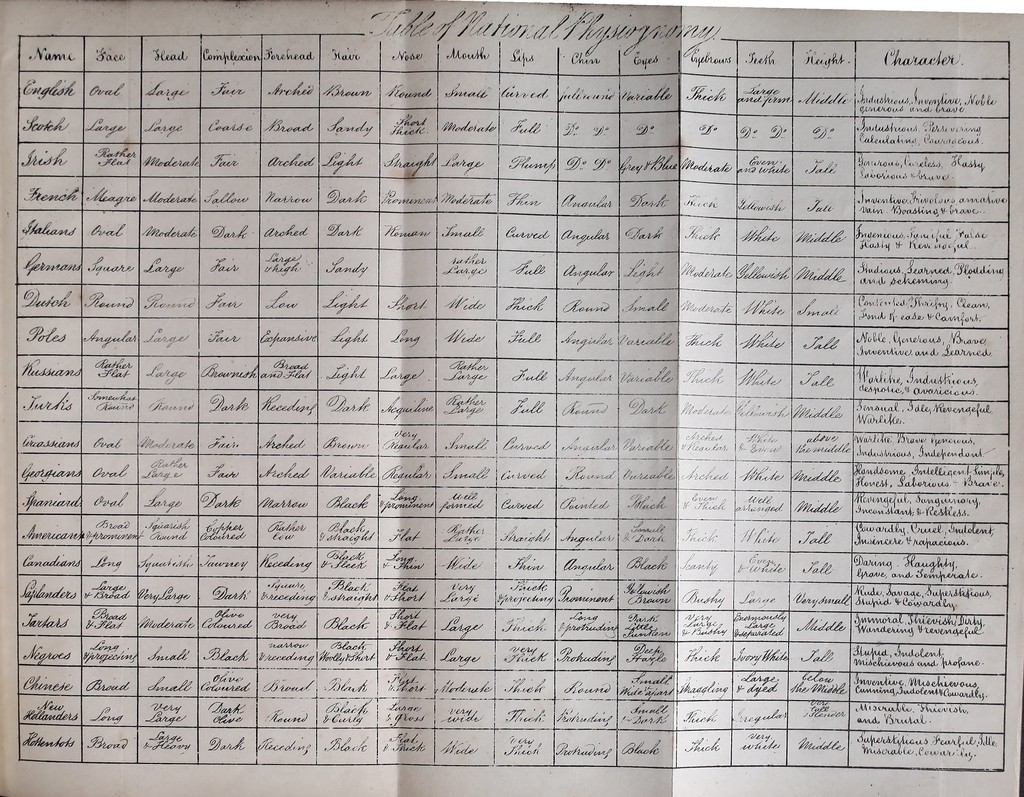 Table of National Physiognomy.
Name Face Head Complexion Forehead Hair Nose Mouth Lips Chin Eyes Eyebrows Teeth Height Character.
English Oval Large Fair Arched Brown Round Small Curved full round Variable Thick Large and firm Middle Industrious, Inventive, Noble generous and brave
Scotch Large Large Coarse Broad Sandy Short Thick Moderate Full Do Do Do Do Do Do Do Industrious, Persevering Calculating, Courageous.
Irish Rather Flat Moderate Fair Arched Light Straight Large Plump Do Do Grey & Blue Moderate Even and white Tall Generous, Careless, Hasty Laborious & brave.
French Meagre Moderate Sallow Narrow Dark Prominent Moderate Thin Angular Dark Thick Yellowish Tall Inventive, Frivolous amative vain Boasting & brave.
Italians Oval Moderate Dark Arched Dark Roman Small Curved Angular Dark Thick White Middle Ingenious, False Hasty & Revengeful.
Germans Square Large Fair Large & high Sandy rather Large Full Angular Light Moderate Yellowish Middle Studious, Learned, Plodding and scheming.
Dutch Round Round Fair Low Light Short Wide Thick Round Small Moderate White Small Contented, Thrifty, Clean, Fond of ease & Comfort.
Poles Angular Large Fair Expansive Light Long Wide Full Angular Variable Thick White Tall Noble, Generous, Brave Inventive and Learned
Russians Rather Flat Large Brownish Broad and Flat Light Large Rather Large Full Angular Variable Thick White Tall Warlike, Industrious, despotic, & avaricious.
Turks Somewhat Round Round Dark Receding Dark Acquiline Rather Large Full Round Dark Moderate Yellowish Middle Sensual, Idle, Revengeful Warlike.
Circassians Oval Moderate Fair Arched Brown very Regular Small Curved Angular Variable Arched & Regular White & Even above the middle Warlike Brave Generous, Industrious, Independant
Georgians Oval Rather Large Fair Arched Variable Regular Small Curved Round Variable Arched White Middle Handsome, Intelligent, Simple, Honest, Laborious & Brave.
Spaniard Oval Large Dark Narrow Black Long & prominent Well formed Curved Pointed Black Even & Thick Well arranged Middle Revengeful, Sanguinary, Inconstant & Restless.
Americans Broad & prominent Squarish Round Copper Coloured Rather Low Black & straight Flat Rather Large Straight Angular Small & Dark Thick White Tall Cowardly, Cruel, Indolent, Insincere & rapacious.
Canadians Long Squarish Tawney Receding Black & Sleek Long & Thin Wide Thin Angular Black Scanty Even & White Tall Daring, Haughty, Grave, and Temperate.
Laplanders Large & Broad Very Large Dark Square & receding Black & straight Flat & Short Very Large Thick & projecting Prominent Yellowish Brown Bushy Large Very small Rude, Savage, Superstitious, Stupid & Cowardly.
Tartars Broad & Flat Moderate Olive Coloured very Broad Black Short & Flat Large Thick Long & protruding Dark Little Sunken Very Large & Bushy Enormously Large & separated Middle Immoral, Thievish, Dirty, Wandering & revengeful
Negroes Long & projecting Small Black narrow & receding Black Woolly & Short Short & Flat Large very Thick Protruding Deep Thick Ivory White Tall Stupid, Indolent, mischievous and profane.
Chinese Broad Small Olive Coloured Broad Black Flat & Short Moderate Thick Round Small Wide apart Straggling Large & dyed below the Middle Inventive, Mischievous, Cunning, Indolent & Cowardly.
New Hollanders Long Very Large Dark Olive Round Black & Curly Large & Gross very wide Thick Protruding Small & Dark Thick Irregular Very Tall & Slender Miserable, Thievish, and Brutal.
Hottentots Broad Large & Heavy Dark Receding Black Flat & Thick Wide Very Thick Protruding Black Thick Very white Middle Superstitious, Fearful, Idle, Miserable, Cowardly.